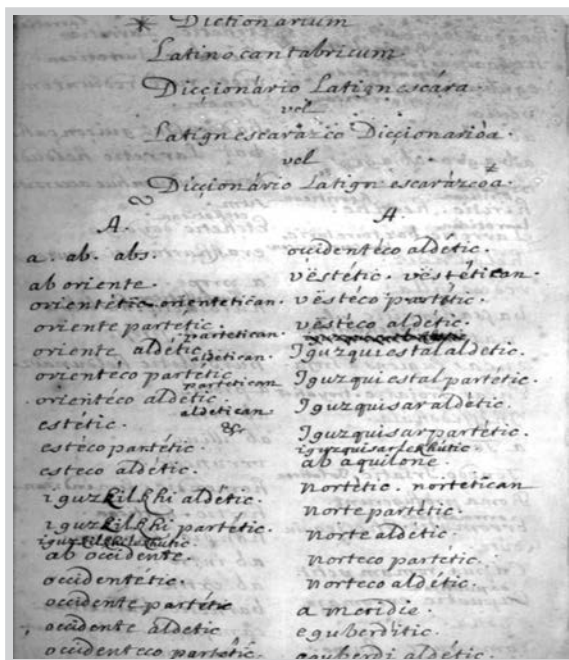 Dictionarium
Latinocantabricum
Diccionário Latignescára
vel
Latignescarázco Diccionarióa.
vel
Diccionário Latignescarázcoa.
A.
a. ab. abs.
ab oriente.
orientétic. orientetican.
oriente partetic. partetican.
oriente aldétic. aldetican.
orientéco partétic. partetican
orientéco aldétic. aldetican
estétic. &c
estéco partétic.
esteco aldetic.
iguzkilkhi aldétic.
iguzkilkhi partétic.
ab occidente.
occidentétic.
occidente partétic
occidente aldetic
occidenteco partétic.
A.
occidentéco aldétic.
vëstétic. vëstétican.
vëstéco partétic.
vëstéco aldétic.
Iguzquiestalaldetic.
Iguzquiestalpartétic.
Iguzquisaraldétic.
Iguzquisarpartétic.
ab aquilone.
nortétic. nortetican
norte partétic.
norte aldétic.
norteco partétic.
norteco aldétic.
a meridie.
eguberditic.
eguberdi aldétic.